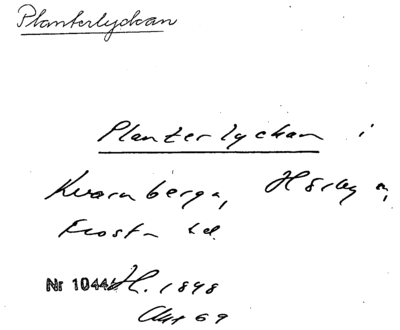 Planterlyckan
Planterlyckan i
Kvarnberga, Hörby sn,
Frosta hd.
Nr 1044 H. 1898
Akt 69